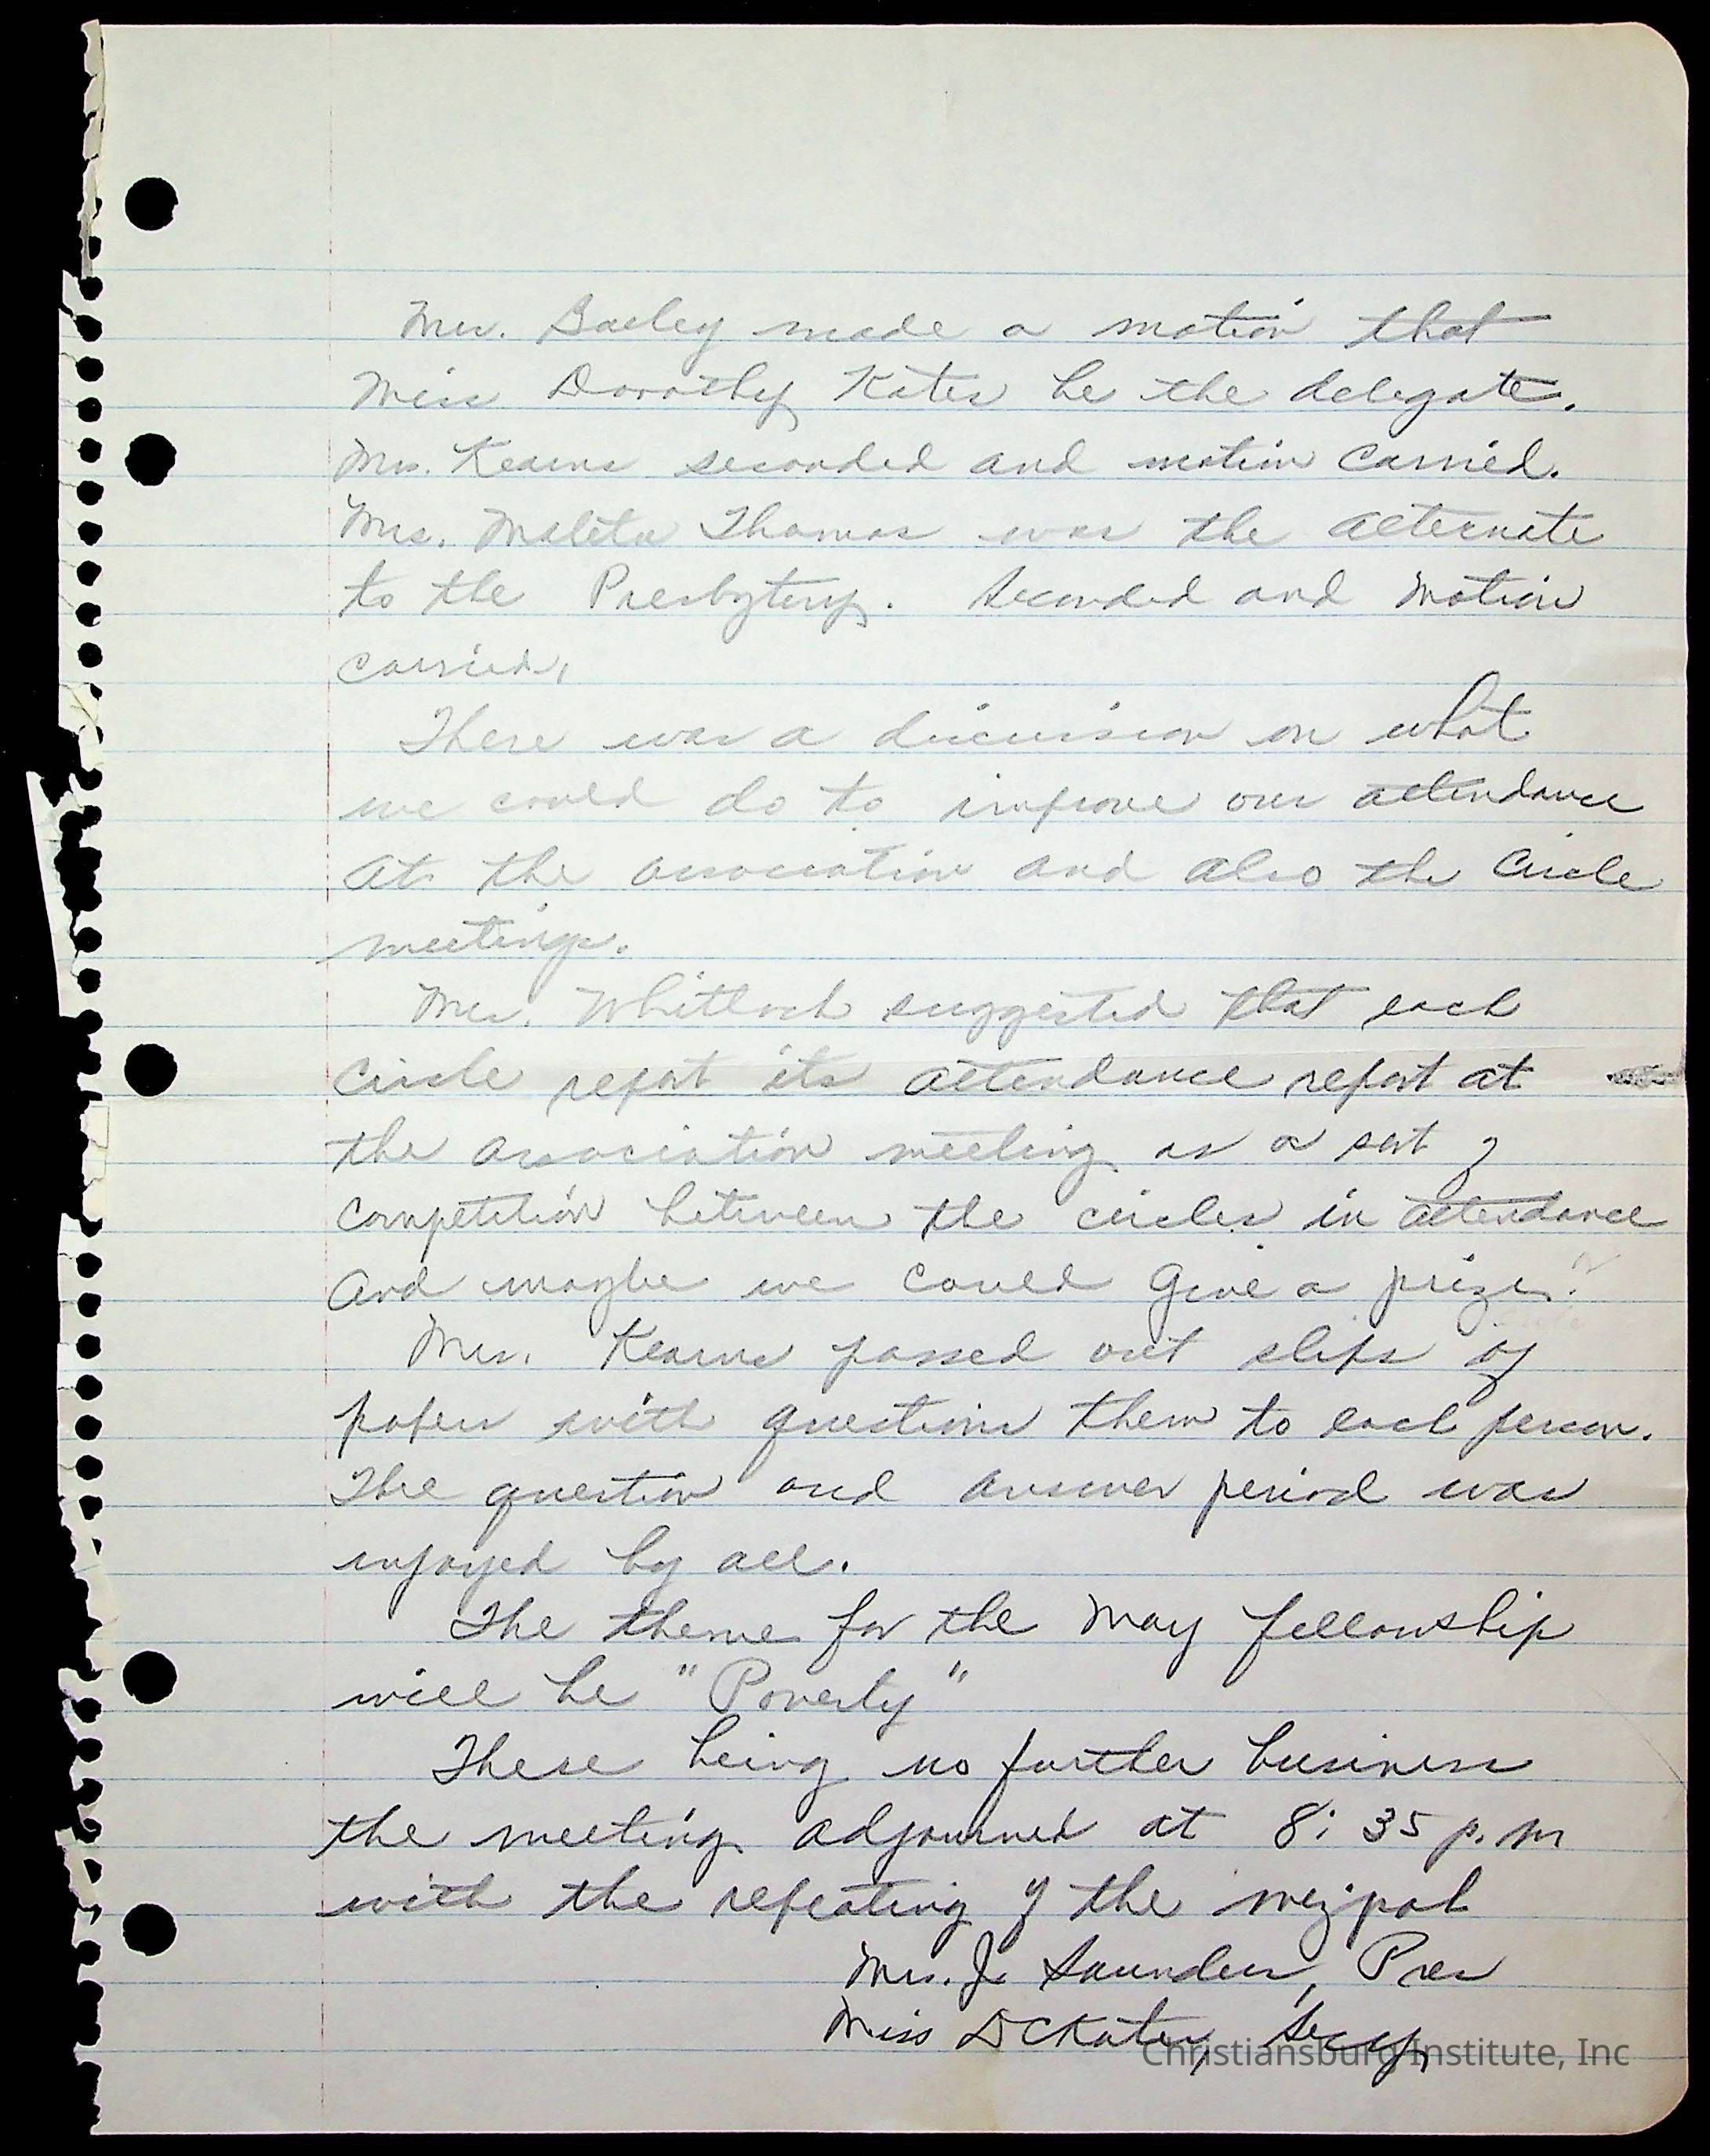 Mrs. Bailey made a motion that
Miss Dorothy Kates be the delegate.
Mrs. Kearns seconded and motion carried.
Mrs. Thomas was the alternate
to the Presbytery. Seconded and motion
carried.
There was a discussion on what
we could do to improve our attendance
at the association and also the Circle
meetings.
Mrs. Whitlock suggested that each
Circle report its attendance report at
the association meeting as a sort of
competition between the circles in attendance
and maybe we could give a prize.
Mrs. Kearns passed out slips of
papers with questions them to each person.
The question and answer period was
enjoyed by all.
The theme for the May fellowship
will be "Poverty"
There being no further business
the meeting adjourned at 8:35 p.m
with the repeating of the mezpah
Mrs. J. Saunders, Pres
Miss D C Kates, Secy,
Christiansburg Institute, Inc